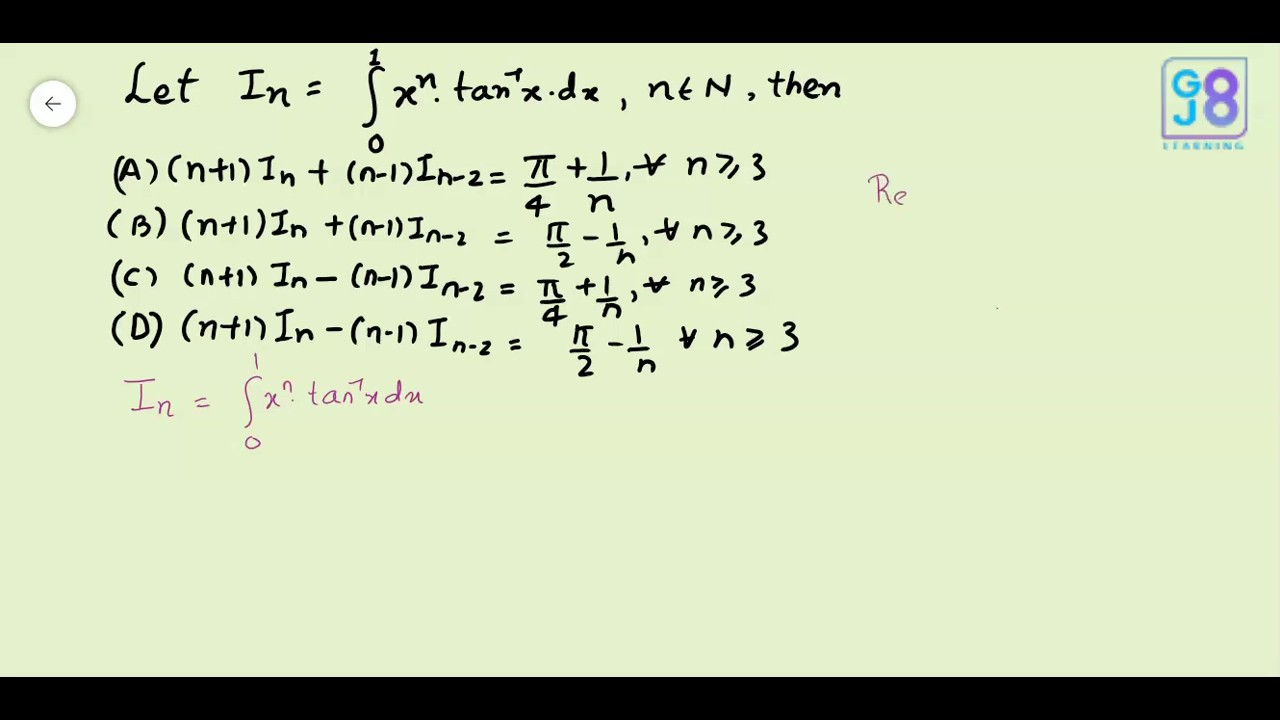 Let Iₙ = ∫₀¹ xⁿ. tan⁻¹x.dx, n∈N, then
(A) (n+1)Iₙ + (n-1)Iₙ₋₂ = π/4 + 1/n, ∀ n≥3
(B) (n+1)Iₙ + (n-1)Iₙ₋₂ = π/2 - 1/n, ∀ n≥3
(C) (n+1) Iₙ - (n-1)Iₙ₋₂ = π/4 + 1/n, ∀ n≥3
(D) (n+1)Iₙ - (n-1) Iₙ₋₂ = π/2 - 1/n ∀ n≥3
Iₙ = ∫₀¹ xⁿ. tan⁻¹x dx
Re
GJ8
LEARNING